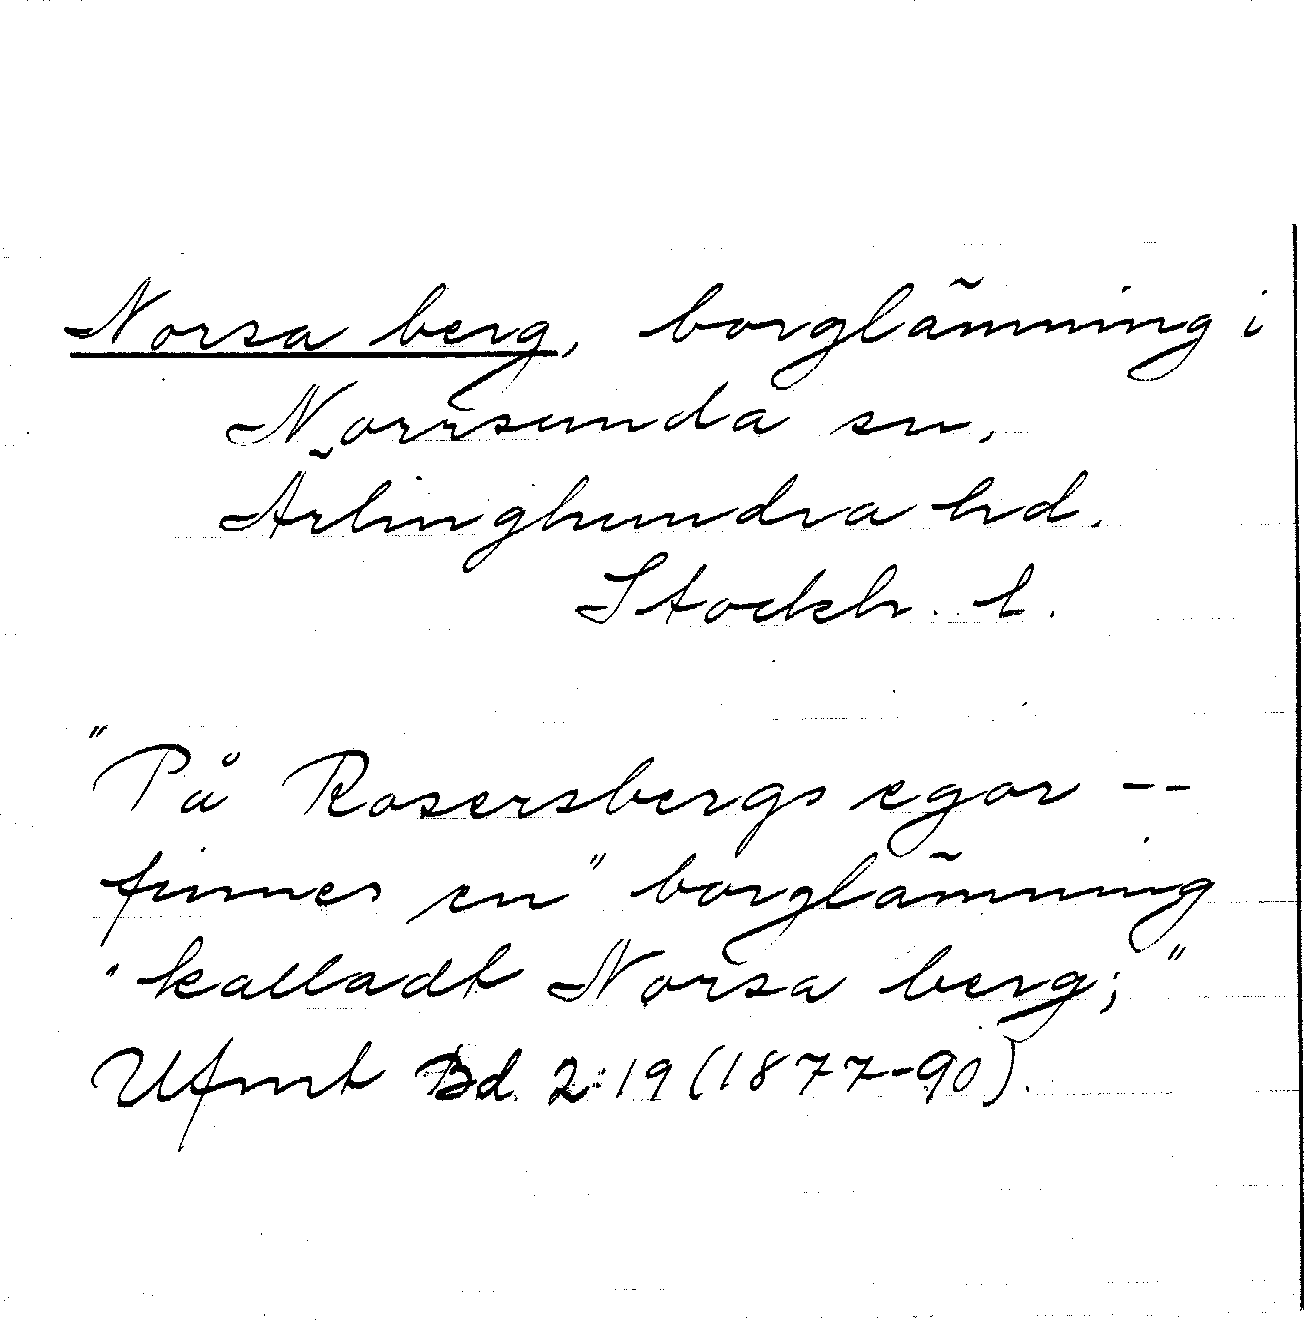 Norsa berg, borglämning i
Norrsunda sn,
Ärlinghundra hd.
Stockh. l.
"På Rosersbergs egor --
finnes en" borglämning
"kalladt Norsa berg;"
Ufmt Bd 2:19 (1877-90).